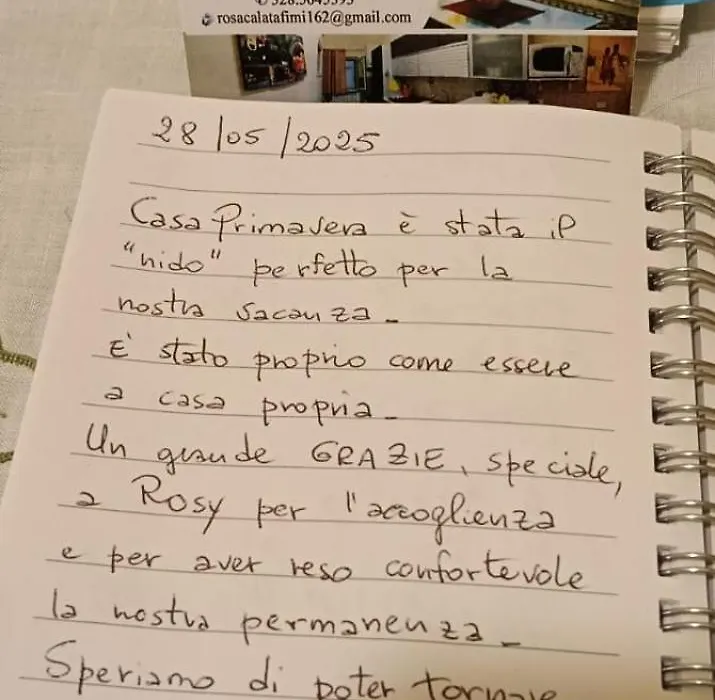 rosacalatafimi162@gmail.com
28/05/2025
Casa Primavera è stata il
"nido" perfetto per la
nostra vacanza.
E' stato proprio come essere
a casa propria.
Un grande GRAZIE, speciale,
a Rosy per l'accoglienza
e per aver reso confortevole
la nostra permanenza.
Speriamo di poter tornare